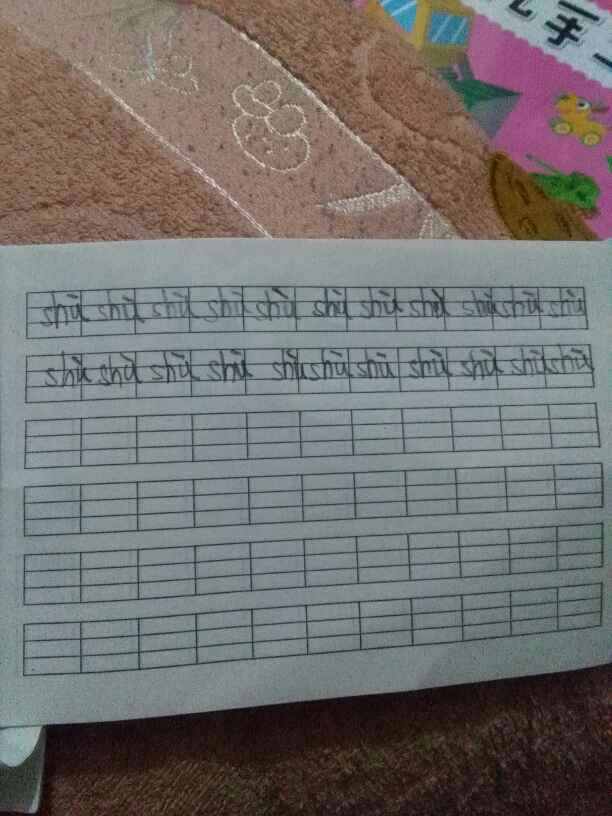 手工
shù shù shù shù shù shù shù shù shù shù shù
shù shù shù shù shù shù shù shù shù shù shù